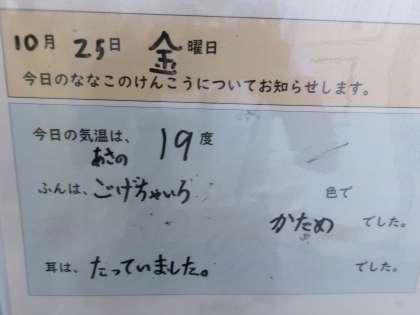 10月 25日 金曜日
今日のななこのけんこうについてお知らせします。
今日の気温は、19度
あさの
ふんは、こげちゃいろ 色で
かため でした。
耳は、たっていました。 でした。